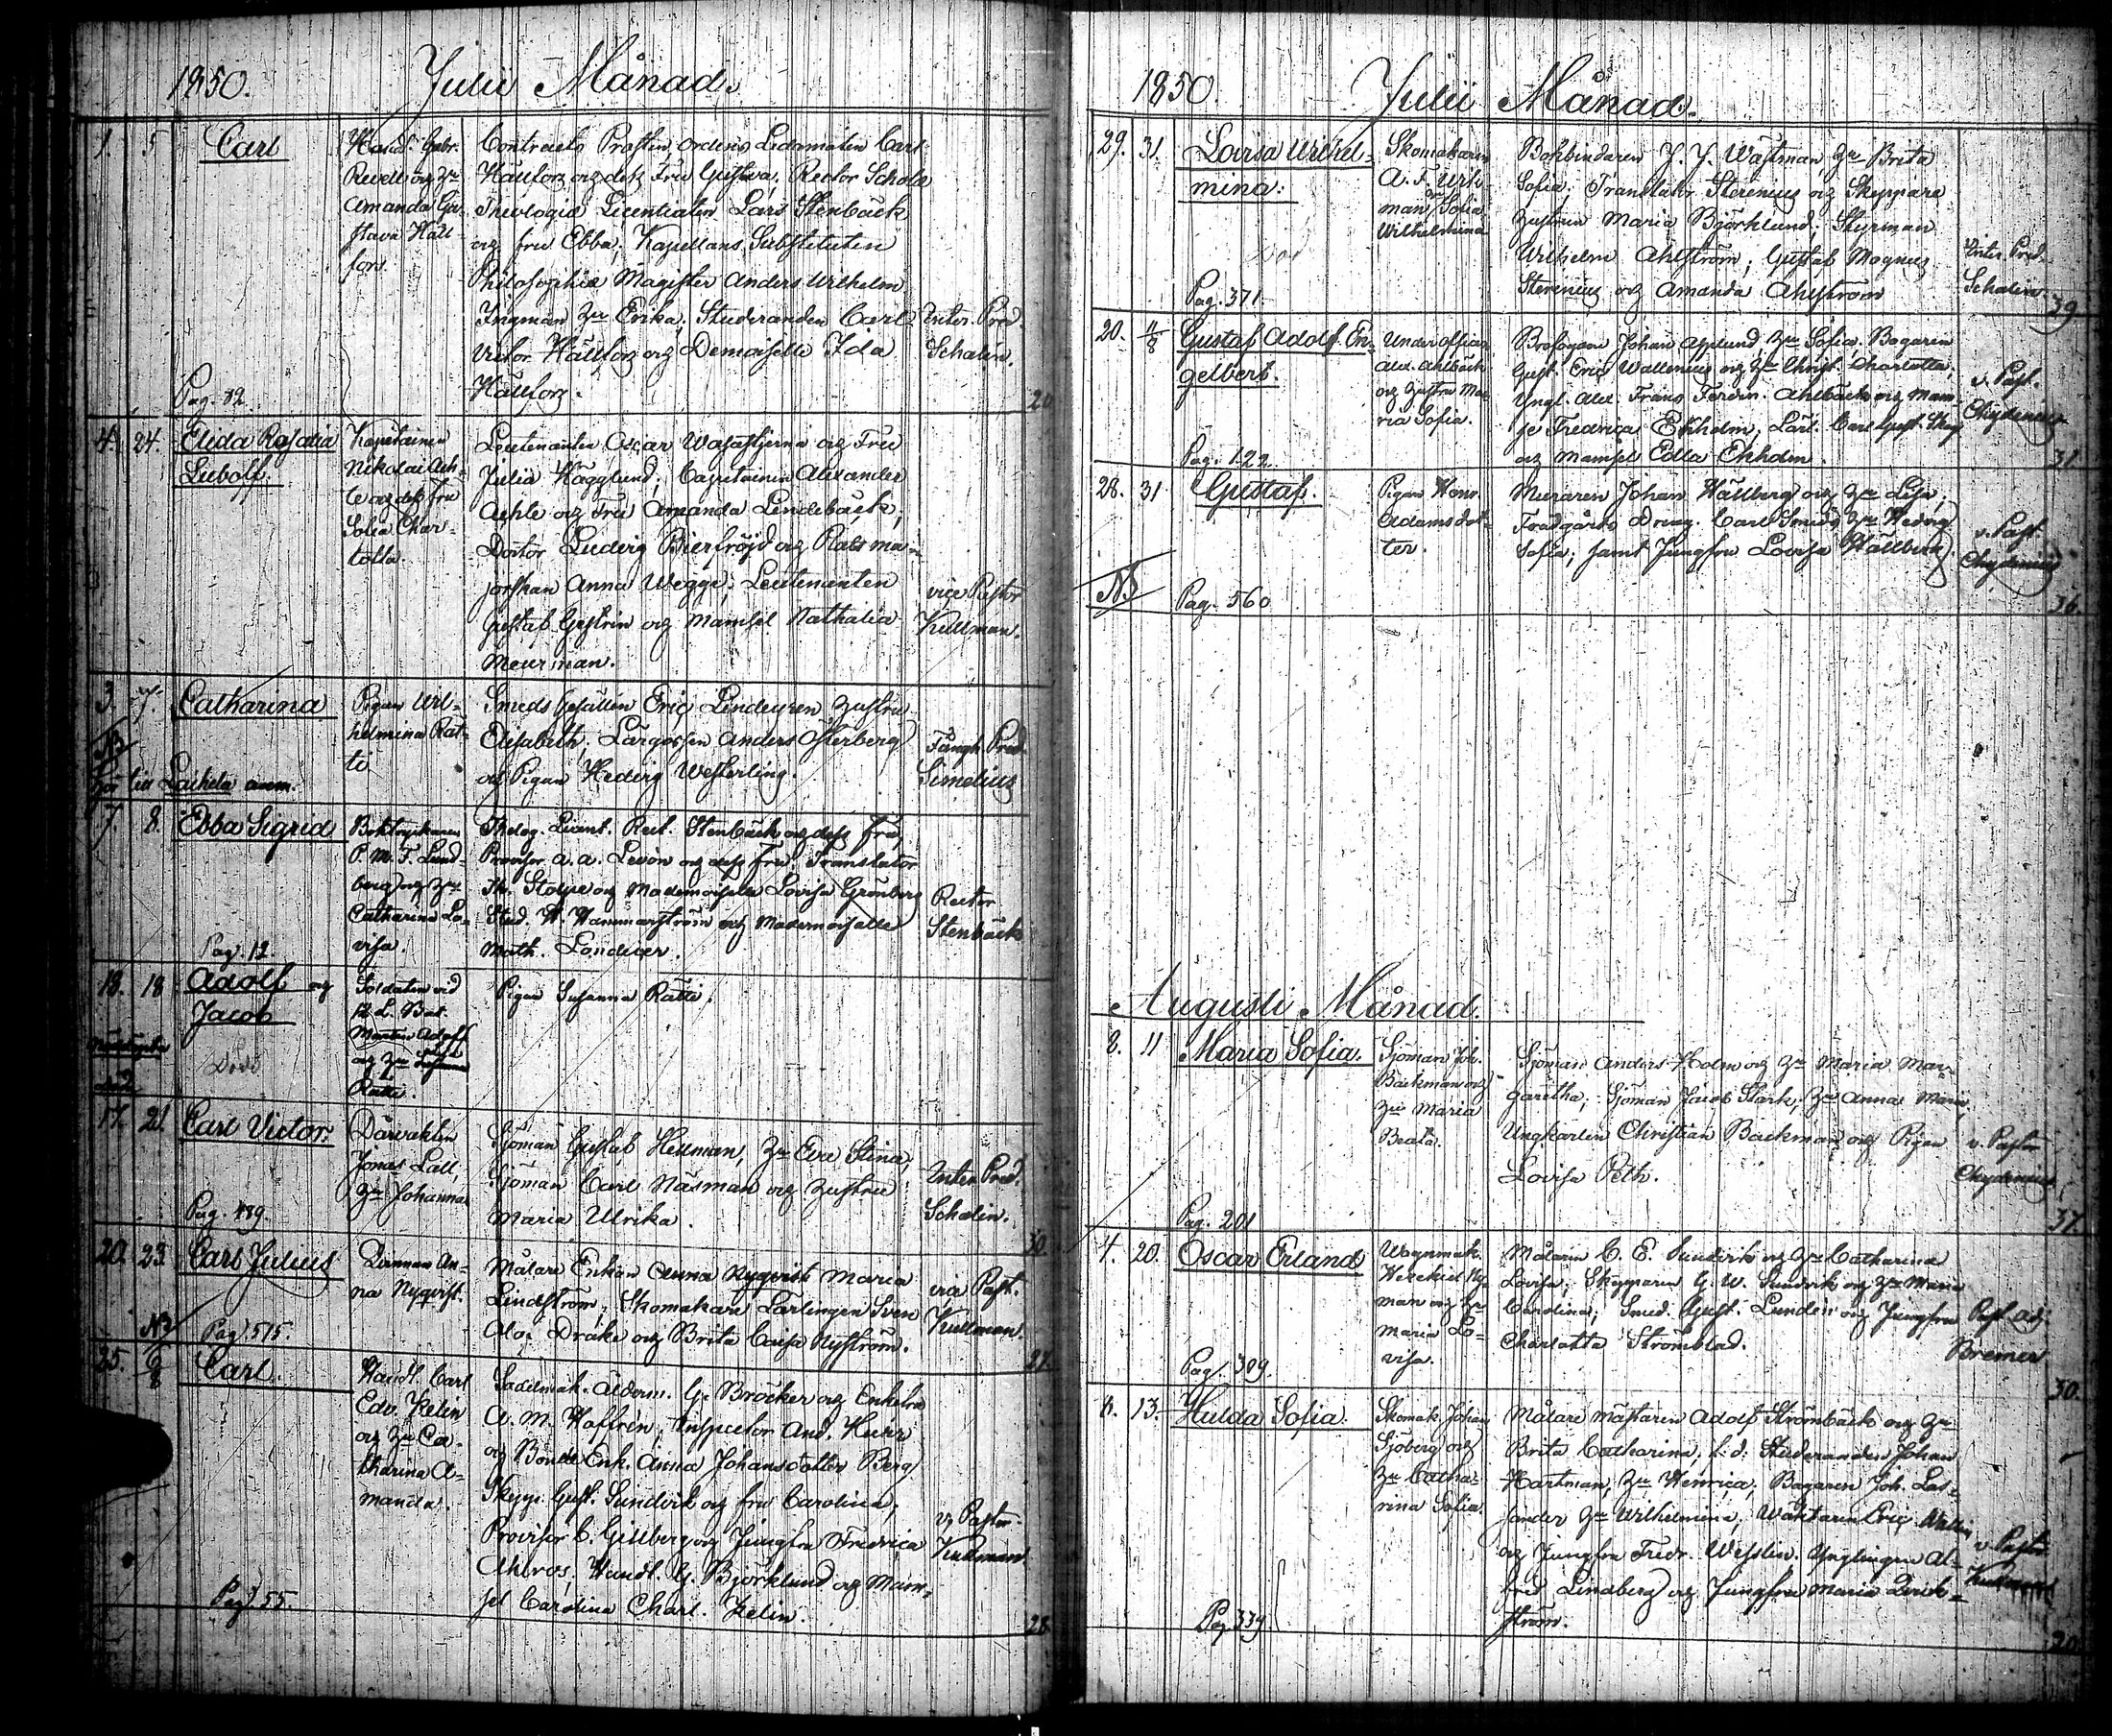 1850. Julii Månad.
1. 5 Carl
Handl. Gabr.
Revell och H:u
Amanda Gu-
stava Häll-
fors.
Contracts Prosten, Ordens Ledamoten Carl
Hällfors och dess Fru Gustava, Rector Scholæ
Theologiæ Licentiaten Lars Stenbäck
och fru Ebba; Kapellans Substituten
Philosophiæ Magister Anders Wilhelm
Ingman H:u Erika, Studeranden Carl
Victor Hällfors och Demoiselle Ida
Hällfors.
Inter. Pred.
Schalin.
Pag. 82.
4. 24. Elida Rosalia
Lubolf.
Kapitainen
Nikolai Aeh-
le och dess fru
Sofia Char-
lotta.
Leutenanten Oscar Wasastjerna och Fru
Julia Hägglund; Capitainen Alexander
Aehle och Fru Amanda Lindebäck;
Doctor Ludvig Bierfröjd och Råds ma-
jorskan Anna Wegge; Leutenanten
Gustaf Gestrin och Mamsel Nathalia
Meurman.
vice Pastor
Kullman.
3. 7. Catharina
Pigan Wil-
helmina Rat-
ti
Smeds Gesällen Eric Lindegren hustru
Elisabeth, Largossen Anders Österberg
och Pigan Hedvig Westerling.
Fängh. Pred.
Simelius
NB
hör till Laihela
7 8. Ebba Sigrid
Boktryckaren
P. M. T. Lund-
berg och H:u
Catharina Lo-
visa.
Theolog. Licent. Rect. Stenbäck och dess fru,
Provisor A. A. Levón och dess fru, Translator
Th. Stolpe och Mademoiselle Lovisa Grönberg
Stud. W. Hammarström och Mademoiselle
Math. Londicer.
Rector
Stenbäck
Pag. 12.
18. 18 Adolf och
Jacob
Soldaten vid
Martin Adolf
och H:u Susanna
Ratti.
Pigan Susanna Ratti.
Döde
17. 21. Carl Victor.
Jonas Lall,
H:u Johanna
Sjöman Gustaf Hellman, H:u Eva Stina,
Sjöman Carl Näsman och hustru
Maria Ulrika.
Inter. Pred.
Schalin.
Pag. 489.
30.
20. 23. Carl Julius
Qvinnan An-
na Nyqvist.
Målare Enkan Anna Nyqvist Maria
Lindström; Skomakare Lärlingen Sven
Alo. Dråke och Brita Caisa Nyström.
vice Past.
Kullman.
NB Pag. 515.
27.
25. 6/8 Carl.
Handl. Carl
Edv. Kelin
och H:u Ca-
tharina A-
manda.
Sadelmak. Alderm. G. Bröcker och Enkefru
A. M. Haffrén; Inspector And.
och Bonde Enk. Anna Johansdotter Berg
Skepp. Gust. Sundvik och fru Carolina;
Provisor C. Gillberg och Jungfru Fredrica
Handl. G. Björklund och Mam-
sel Carolina Charl. Kelin.
v. Pastor
Kullman.
Pag. 55.
28.
1850. Julii Månad.
29. 31. Lovisa Wilhel-
mina.
Skomakaren
A. F. Wik-
man och Sofia
Wilhelmina
Bokbindaren J. J. Wästman, H:u Brita
Sofia; Translator Sterenius och Skeppare
hustrun Maria Björklund; Styrman
Wilhelm Ahlström; Gustaf Magnus
Sterenius och Amanda Ahlström
Inter. Pred.
Schalin
Död
Pag. 371.
39.
20. 4/8 Gustaf Adolf En-
gelbert.
Under officer
Alex. Ahlbäck
och hustru Ma-
ria Sofia.
Johan Applund H:u Sofia, Bagaren
Gust. Eric Wallenius och H:u Christ. Charlotta;
Yngl. Alex. Frans Ferdin. Ahlbäck och Mam-
sel Fredrica Ekholm; Lärl. Carl Gust. Skog
och Mamsel Edla Ekholm.
v. Past.
Chydenius
Pag. 122.
31.
28. 31. Gustaf.
Pigan
Adamsdot-
ter.
Muraren Johan Hällberg och H:u Lisa;
Trädgårds Dräng. Carl Smeds H:u Hedvig
Sofia; samt Jungfru Lovisa Hällberg.
v. Past.
Chydenius
NB Pag. 560
36.
Augusti Månad.
8. 11 Maria Sofia.
Sjöman Joh.
Backman och
H:u Maria
Beata.
Sjöman Anders Holm och H:u Maria Mar-
garetha; Sjöman Jacob Stark, H:u Anna Maria,
Ungkarlen Christian Backman och Pigan
Lovisa Pelth.
v. Pastor
Chydenius
Pag. 201
37.
4. 20. Oscar Erland
Wagnmak.
Hezekiel Ny-
man och H:u
Maria Lo-
visa.
Målaren C. E. Sundvik och H:u Catharina
Lovisa; Skepparen G. W. Sundvik och H:u Maria
Carolina; Smed. Gust. Lundén och Jungfru
Charlotta Strömblad.
Past. Adj.
Bremer
Pag. 309.
30.
11. 13. Hulda Sofia.
Skomak. Johan
Sjöberg och
H:u Catha-
rina Sofia.
Målare mästaren Adolf Strömbäck och H:u
Brita Catharina, f. d. Studeranden Johan
Hartman, H:u Henrica; Bagaren Joh. Las-
sander H:u Wilhelmina; Wäktaren Eric Wallin
och Jungfru Fredr. Wesslin. Ynglingen Al-
fred Lindberg och Jungfru Maria Lind-
ström.
v. Pastor
Kullman
Pag. 339.
20.